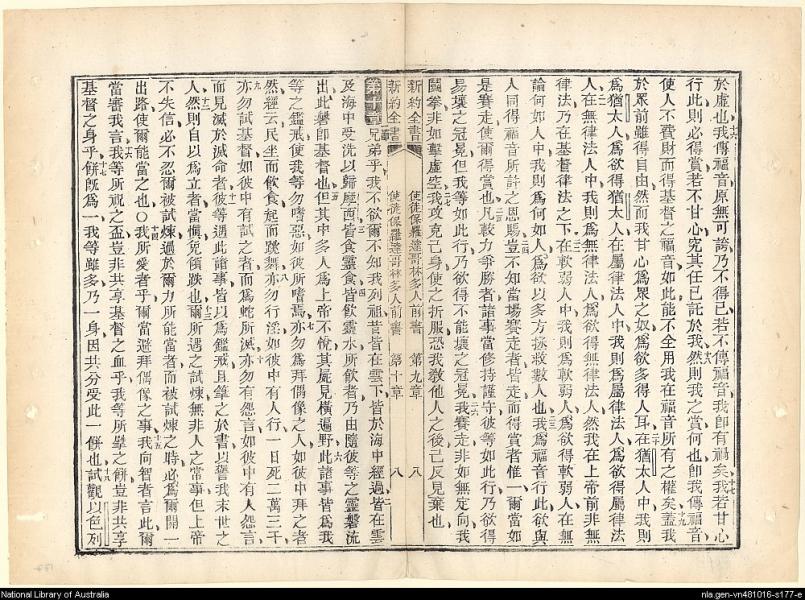 於虛也我傳福音原無可誇乃不得已若不傳福音我卽有禍矣我若甘心
行此則必得賞若不甘心究其任已託於我然則我之賞何也卽我傳福音
使人不費財而得基督之福音如此能不全用我在福音所有之權矣蓋我
於眾前雖得自由然而我甘心爲眾之奴爲欲多得人耳在猶太人中我則
爲猶太人爲欲得猶太人在屬律法人中我則爲屬律法人爲欲得屬律法
人在無律法人中我則爲無律法人爲欲得無律法人然我在上帝前非無
律法乃在基督律法之下在軟弱人中我則爲軟弱人爲欲得軟弱人在無
論何如人中我則爲何如人爲欲以多方拯救數人也我爲福音行此欲與
人同得福音所許之恩賜豈不知當場賽走者皆走而得賞者惟一爾當如
是賽走使爾得賞也凡較力爭勝者諸事當修持謹守彼等如此行乃欲得
易壞之冠冕但我等如此行乃欲得不能壞之冠冕我賽走非如無定向我
鬬拳非如擊虛空我攻克己身使之折服恐我敎他人之後己反見棄也
新約全書 使徒保羅達哥林多人前書 第九章 八
新約全書 使徒保羅達哥林多人前書 第十章 八
兄弟乎我不欲爾不知我列祖昔皆在雲下皆於海中經過皆在雲
及海中受洗以歸摩西皆食靈食皆飲靈水所飲者乃由隨彼等之靈磐流
出此磐卽基督也但其中多人爲上帝不悅其屍見橫遍野此諸事皆爲我
等之鑑戒使我等勿嗜惡如彼所嗜焉亦勿爲拜偶像之人如彼中拜之者
然經云民坐而飲食起而跳舞亦勿行淫如彼中有人行一日死二萬三千
亦勿試基督如彼中有試之者而爲蛇所滅亦勿有怨言如彼中有人怨言
而見滅於滅命者彼等遇此諸事皆以爲鑑戒且筆之於書以警我末世之
人然則自以爲立者當愼免傾跌也爾所遇之試煉無非人之常事但上帝
不失信必不忍爾被試煉過於爾力所能當者而被試煉之時必爲爾開一
出路使爾能當之也〇我所愛者乎爾當避拜偶像之事我向智者言此爾
當審我言我等所祝之盃豈非共享基督之血乎我等所擘之餅豈非共享
基督之身乎餅旣爲一我等雖多乃一身因共分受此一餅也試觀以色列
National Library of Australia
nla.gen-vn481016-s177-e